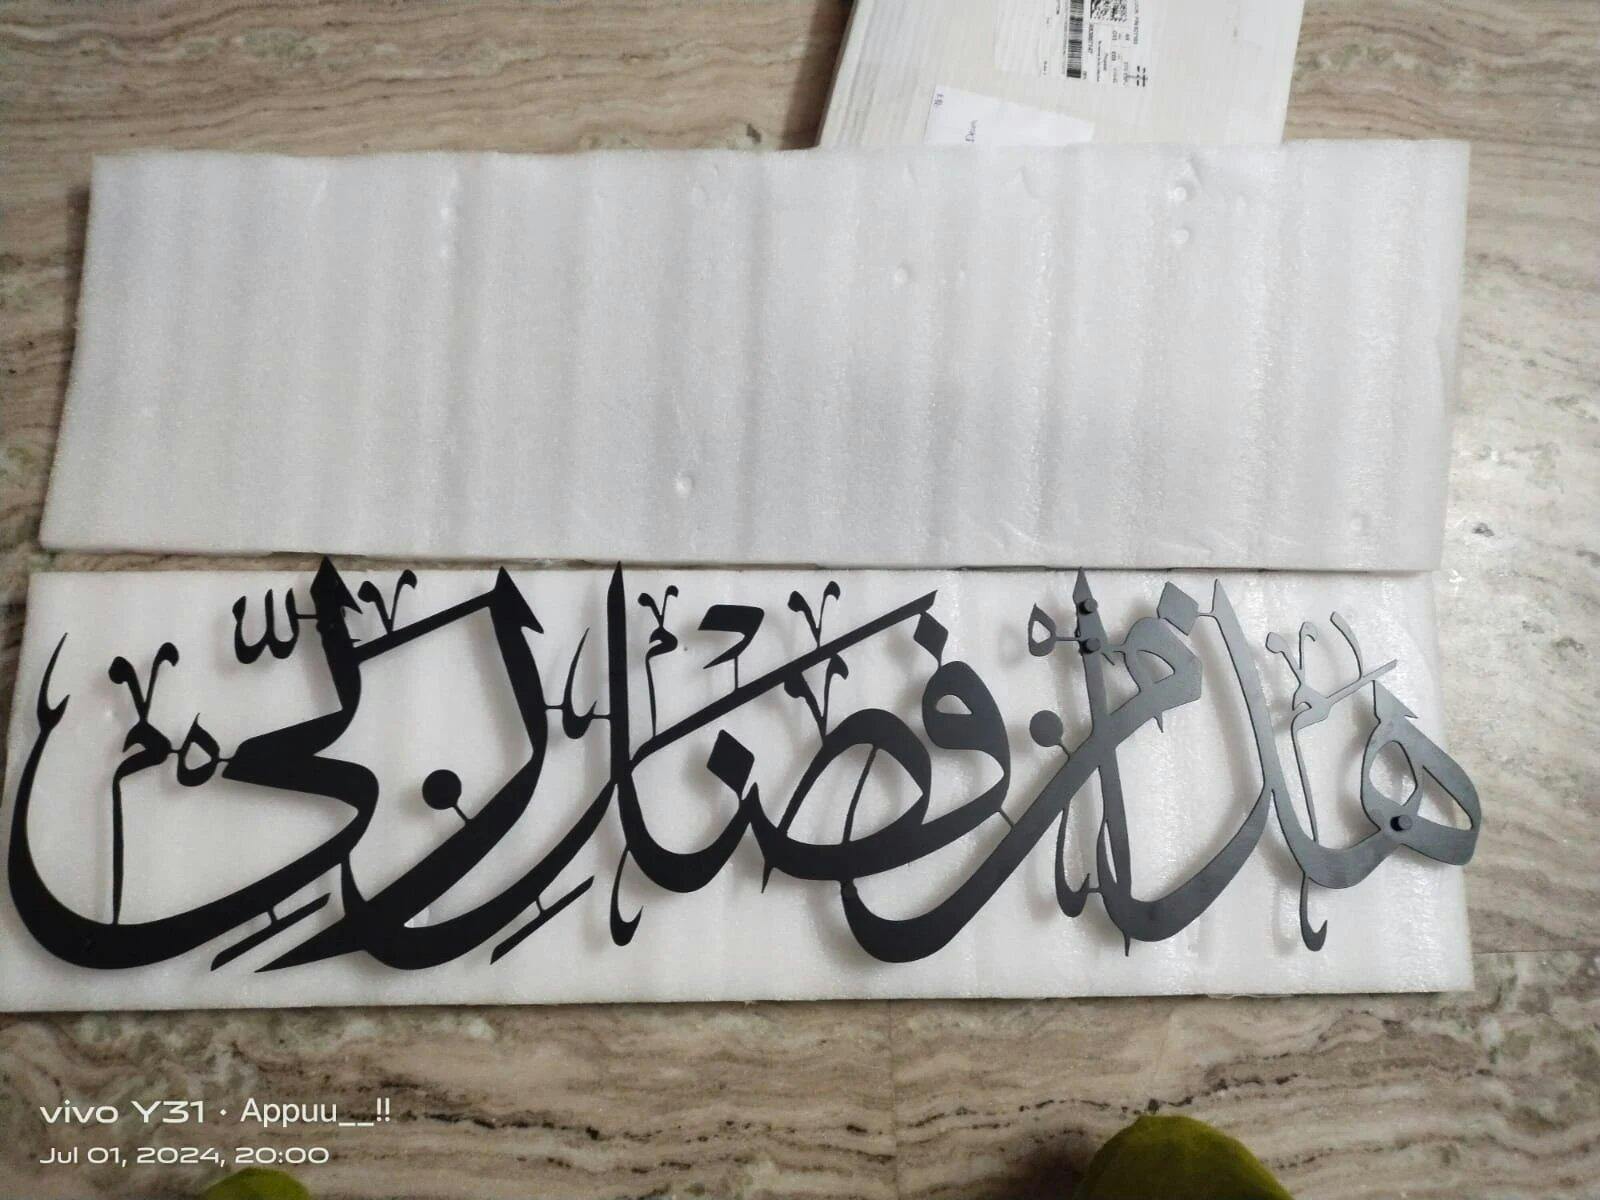 هذا من فضل ربي
الله
vivo Y31 · Appuu__!!
Jul 01, 2024, 20:00